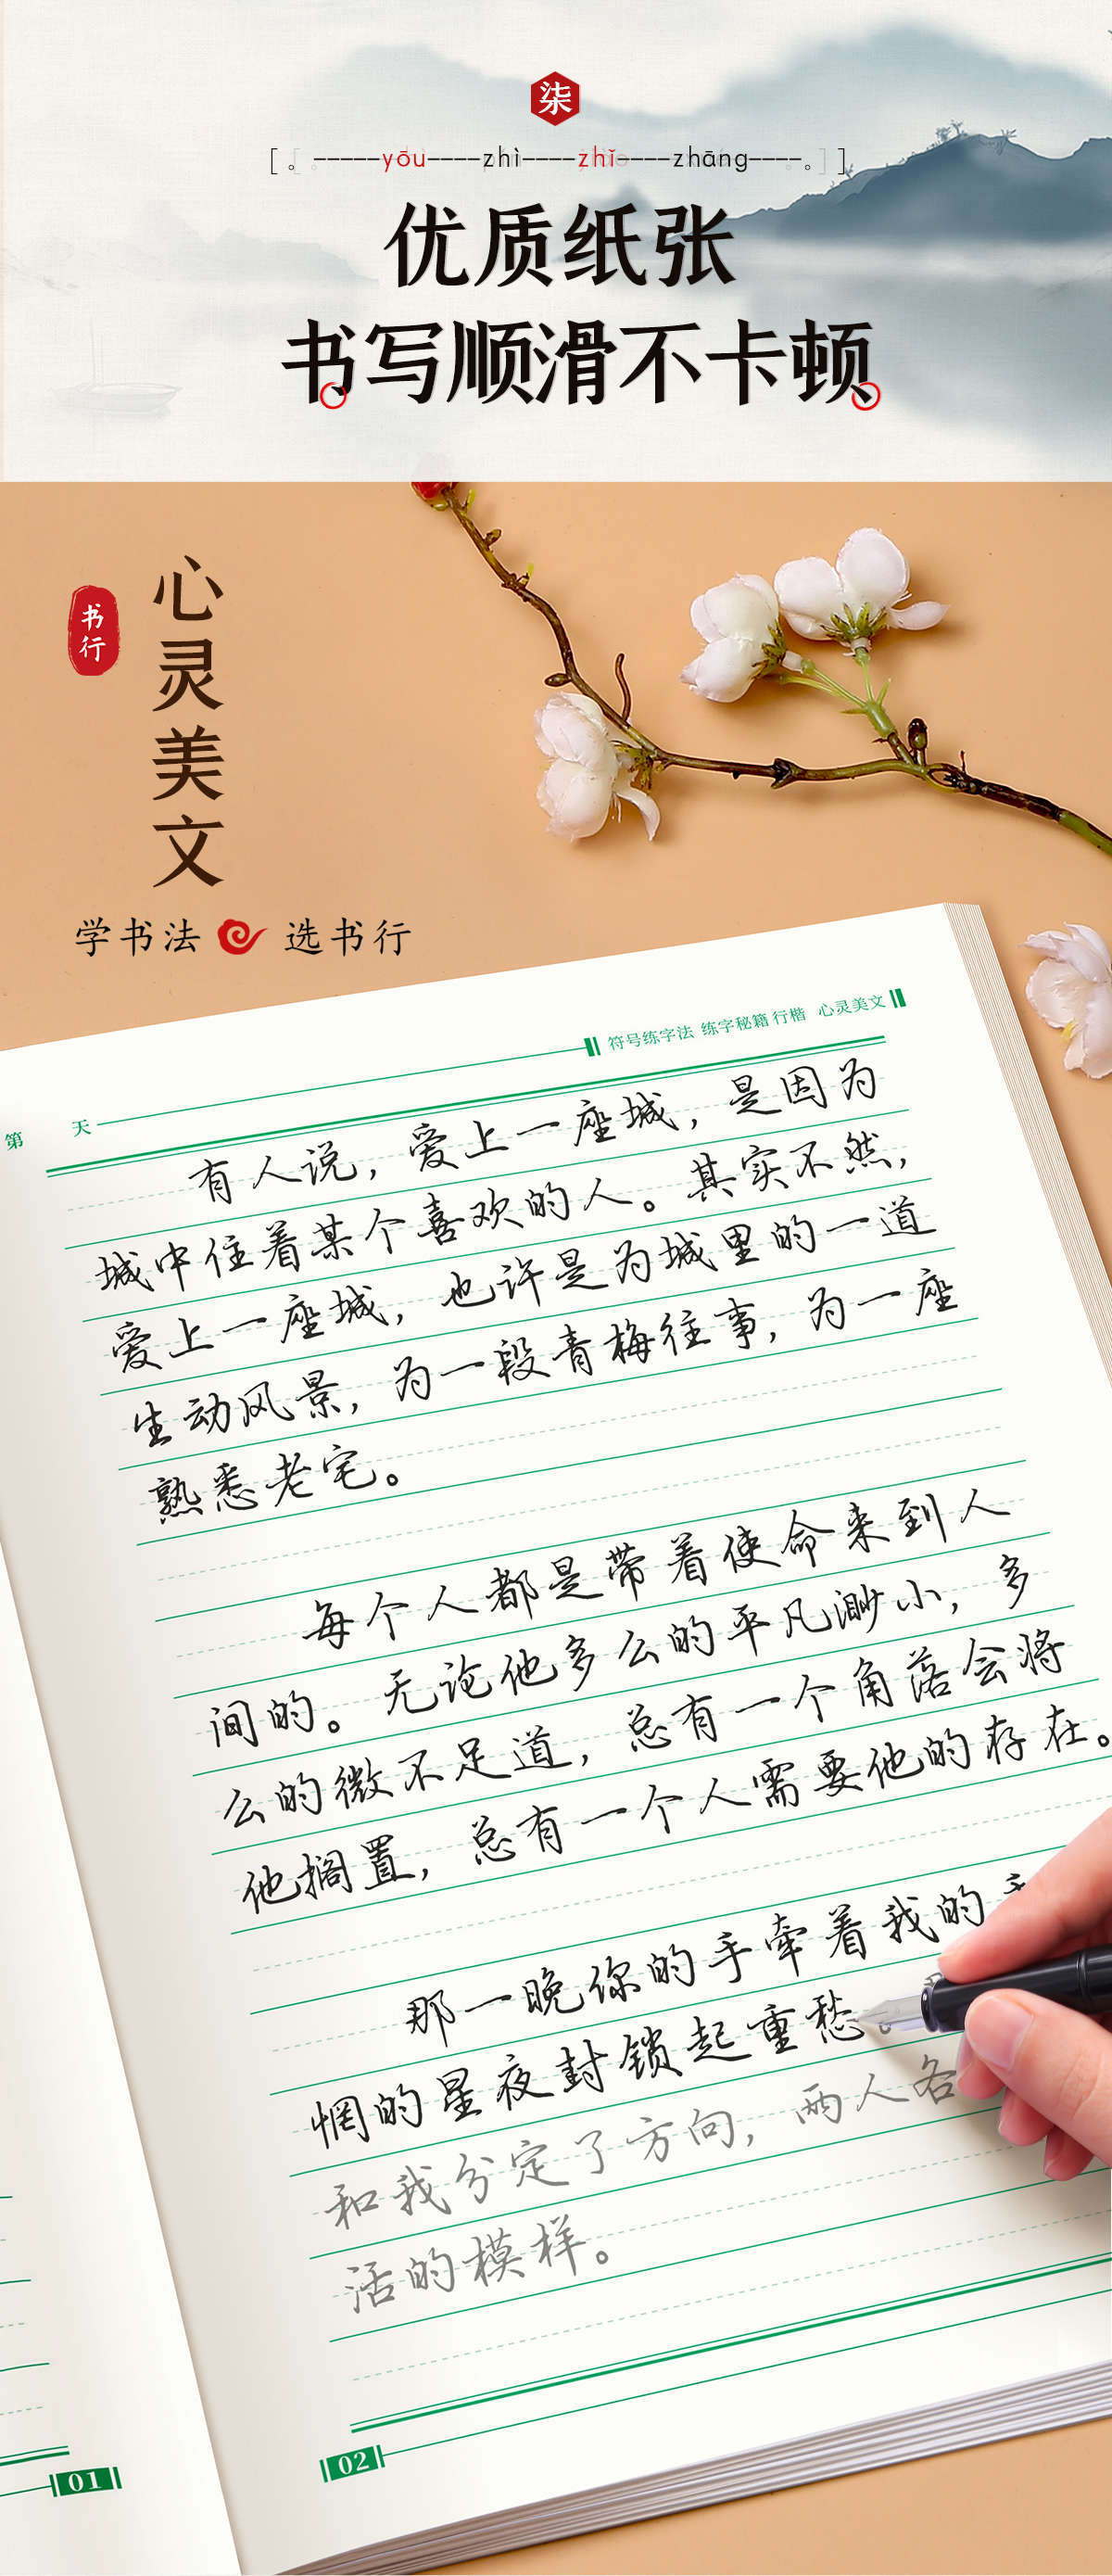 柒
[ 。-----yōu----zhì----zhǐ----zhāng----。 ]
优质纸张
书写顺滑不卡顿
书行
心灵美文
学书法 选书行
符号练字法 练字秘籍 行楷 心灵美文
第 天
有人说，爱上一座城，是因为
城中住着某个喜欢的人。其实不然，
爱上一座城，也许是为城里的一道
生动风景，为一段青梅往事，为一座
熟悉老宅。
每个人都是带着使命来到人
间的。无论他多么的平凡渺小，多
么的微不足道，总有一个角落会将
他搁置，总有一个人需要他的存在。
那一晚你的手牵着我的
惘的星夜封锁起重愁。
和我分定了方向，两人各
活的模样。
01
02